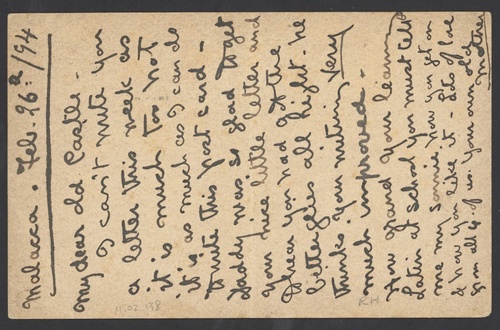 Malacca. Feb. 26th/94
My dear old Pastle -
I can't write you
a letter this week as
it is much too hot
it is as much as I can do
to write this post card -
Daddy was so glad to get
your nice little letter and
I hear you had got the
letter all right. he
thinks your writing very
much improved -
How grand your learning
Latin at school you must tell
me my sonnie how you get on
& how you like it - Lots of love
from all of us. your own old
Mother
11.02.138
R.H.